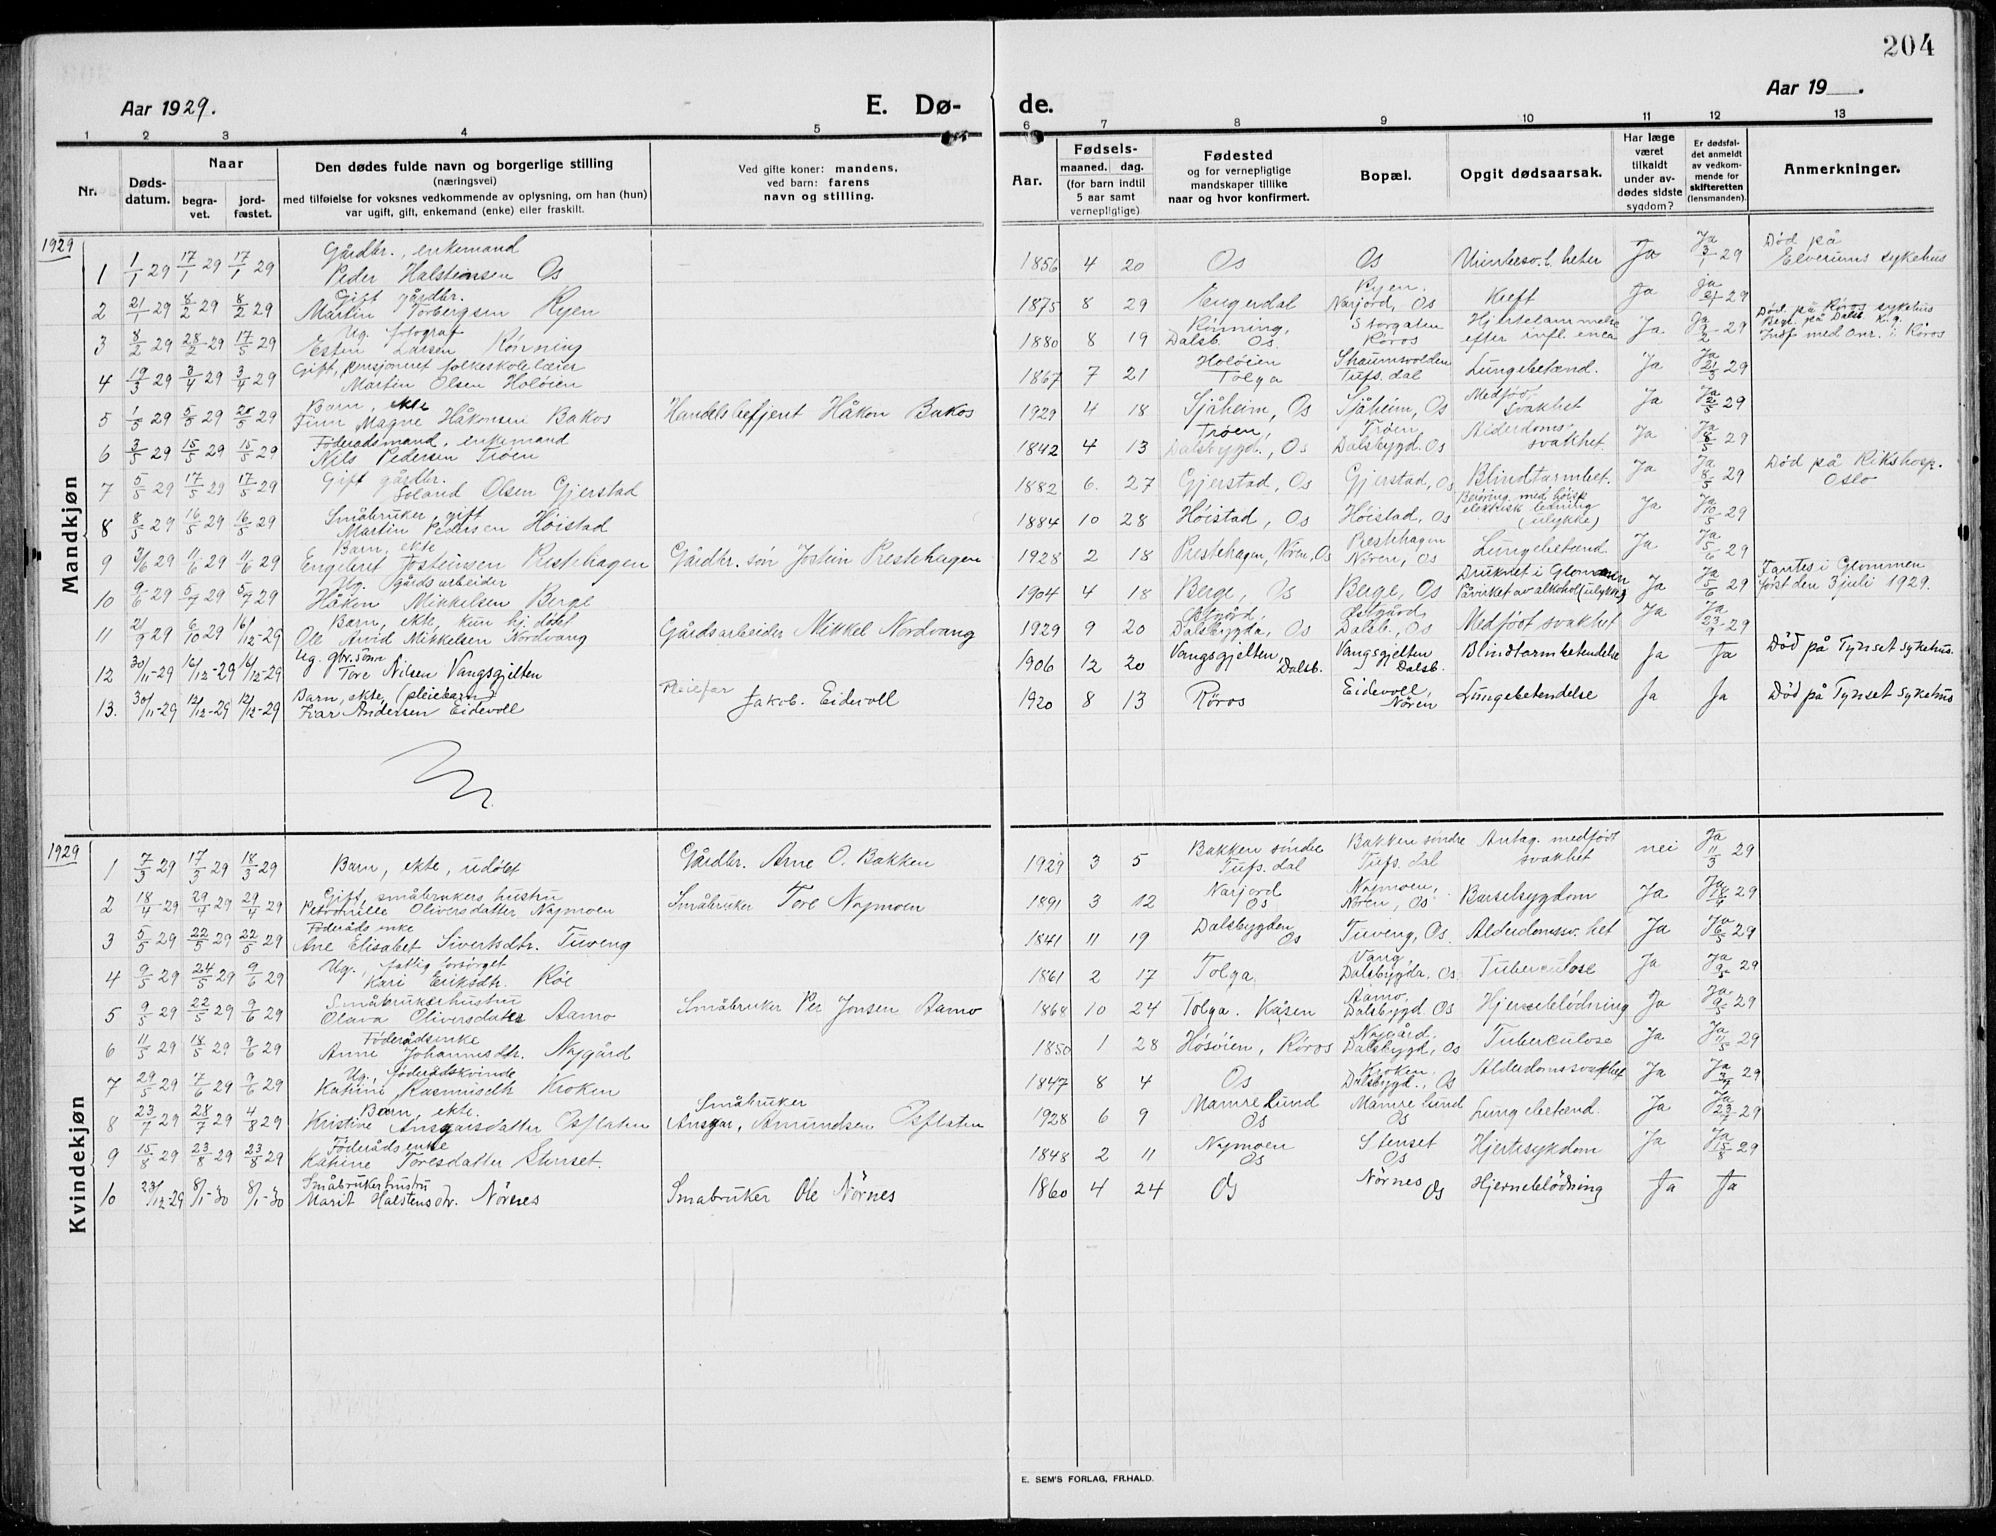 204
Aar 1929.
E. Dø-
de.
Aar 19__.
1 2 3 4 5 6 7 8 9 10 11 12 13
Nr.
Døds-
datum.
Naar
begra-
vet.
jord-
fæstet.
Den dødes fulde navn og borgerlige stilling
(næringsvei)
med tilføielse for voksnes vedkommende av oplysning, om han (hun)
var ugift, gift, enkemand (enke) eller fraskilt.
Ved gifte koner: mandens,
ved barn: farens
navn og stilling.
Fødsels-
Aar.
maaned. dag.
(for barn indtil
5 aar samt
vernepligtige)
Fødested
og for vernepligtige
mandskaper tillike
naar og hvor konfirmert.
Bopæl.
Opgit dødsaarsak.
Har læge
været
tilkaldt
under av-
dødes sidste
sygdom?
Er dødsfal-
det anmeldt
av vedkom-
mende for
skifteretten
(lensmanden).
Anmerkninger.
Mandkjøn
1929
1 1/1 29 17/1 29 17/1 29 Gårdbr., enkemand
Peder Halstensen Os 1856 4 20 Os Os Ja Ja 3/1 29 Død på
Elverums sykehus
2 21/1 29 8/2 29 8/2 29 Gift gårdbr.
Martin Torbergsen Ryen 1875 8 29 Engerdal Ryen,
Narjord, Os Kreft Ja ja 21/1 29
3 8/2 29 28/2 29 17/5 29 Ug. fotograf
Esten Larsen Rönning 1880 8 19 Rönning,
Dalsb. Os. Storgaten
Röros Hjertelammelse
efter infl. Ja Ja 29 Död på Röros sykehus
Begr. på Dalsb. k.g.
4 19/3 29 3/4 29 3/4 29 Gift, pensjoneret folkeskolelærer
Martin Olsen Holöien 1867 7 21 Holöien
Tolga Tufs. dal Lungebetænd. Ja Ja 21/3 29
5 1/5 29 5/5 29 20/5 29 Barn, ekte
Finn Magne Håkonsen Bakos Handelsbetjent Håkon Bakos 1929 4 18 Sjåheim, Os Sjåheim, Os Medfød.
svakhet Ja Ja 2/5 29
6 3/5 29 15/5 29 15/5 29 Föderådsmand, enkemand
Nils Pedersen Tröen 1842 4 13 Tröen,
Dalsbygd., Os Tröen,
Dalsbygd. Os Alderdoms-
svakhet. Ja Ja 8/5 29
7 5/5 29 17/5 29 17/5 29 Gift gårdbr.
Olsen Gjerstad 1882 6 27 Gjerstad, Os Gjerstad, Os Blindtarmbet. Ja Ja 8/5 29 Død på Rikshosp.
Oslo
8 8/5 29 16/5 29 16/5 29 Småbruker, gift
Martin Pedersen Höistad 1884 10 28 Höistad, Os Höistad, Os Beröring med höisp.
elektrisk ledning
(ulykke) Ja Ja 10/5 29
9 3/6 29 11/6 29 11/6 29 Barn, ekte
Engebret Josteinsen Prestehagen Gårdbr. sön Jostein Prestehagen 1928 2 18 Prestehagen, Nören, Os Prestehagen
Nören, Os Lungebetænd. Ja Ja 5/6 29
10 9/6 29 5/7 29 5/7 29 Ug. gårdsarbeider
Håkon Mikkelsen Berge 1904 4 18 Berge, Os Berge, Os Druknet i Glommen
Påvirket av alkohol (ulykke) Ja Ja 5/6 29 Fantes i Glommen
først den 3 juli 1929.
11 21/9 29 6/10 29 16/12-29 Barn, ekte, kun hj. döbt
Ole Arvid Mikkelsen Nordvang Gårdsarbeider Mikkel Nordvang 1929 9 20 Östgård,
Dalsbygda, Os Östgård,
Dalsb., Os Medfödt svakhet Ja Ja 23/9 29
12 30/11-29 16/12-29 16/12-29 Ug. gbr. sönn
Tore Nilsen Vangsgjelten 1906 12 20 Vangsgjelten
Dalsb. Vangsgjelten
Dalsb. Blindtarmbetendelse Ja Ja Död på Tynset sykehus.
13. 30/11-29 12/12-29 12/12-29 Barn, ekte, (pleiebarn)
Ivar Andersen Eidevoll Pleiefar Jakob. Eidevoll 1920 8 13 Röros Eidevoll,
Nören Lungebetendelse Ja Ja Död på Tynset sykehus
Kvindekjøn
1929
1 7/3 29 17/3 29 18/3 29 Barn, ekte, udöbt Gårdbr. Arne O. Bakken 1929 3 5 Bakken söndre
Tufs. dal Bakken söndre
Tufs. dal Antag. medfödt
svakhet nei Ja 11/3 29
2 18/4-29 29/4 29 29/4 29 Gift, småbrukers hustru
Petronille Oliversdatter Nymoen Småbruker Tore Nymoen 1891 3 12 Narjord
Os Nymoen,
Nören, Os Barselsygdom Ja Ja 18/4 29
3 5/5 29 22/5 29 22/5 29 Föderådsenke
Ane Elisabet Sivertsdtr. Tuveng 1841 11 19 Dalsbygden
Os Tuveng, Os. Alderdomssv.het Ja Ja 6/5 29
4 9/5 29 24/5 29 9/6 29 Ug., fattig forsörget
Kari Eriksdtr. Röe 1861 2 17 Tolga Vang,
Dalsbygda, Os. Tuberculose Ja Ja 9/5 29
5 9/5 29 22/5 29 9/6 29 Småbrukerhustru
Olava Oliversdatter Aamo Småbruker Per Jonsen Aamo 1864 10 24 Tolga. Kåsen Aamo,
Dalsbygd. Os Hjerneblödning Ja Ja 9/5 29
6 11/5 29 18/5 29 9/6 29 Föderådsenke
Anne Johannesdtr. Nygård 1850 1 28 Hösöien, Röros Nygård.
Dalsbygd, Os Tuberculose Ja Ja 11/5 29
7 29/5 29 7/6 29 9/6 29 Ug. föderådskvinde
Katrine Rasmusdtr Kroken 1847 8 4 Os Kroken,
Dalsbygd., Os Alderdomssvakhet Ja Ja 29
8 23/7 29 28/7 29 4/8 29 Barn, ekte.
Kristine Ansgarsdatter Osflaten Småbruker
Ansgar, Amundsen Osflaten 1928 6 9 Mamrelund
Os Mamrelund
Os Lungebetænd. Ja Ja 23/7 29
9 15/8 29 23/8 29 23/8 29 Föderådsenke
Katrine Toresdatter Stenset. 1848 2 11 Nymoen
Os Stenset
Os Hjertesykdom Ja Ja 15/8 29
10 23/12-29 8/1-30 8/1-30 Småbrukerhustru
Marit Halstensdtr. Nörnes Småbruker Ole Nörnes 1860 4 24 Os Nörnes Os Hjerneblödning Ja Ja
E. SEM'S FORLAG, FR.HALD.